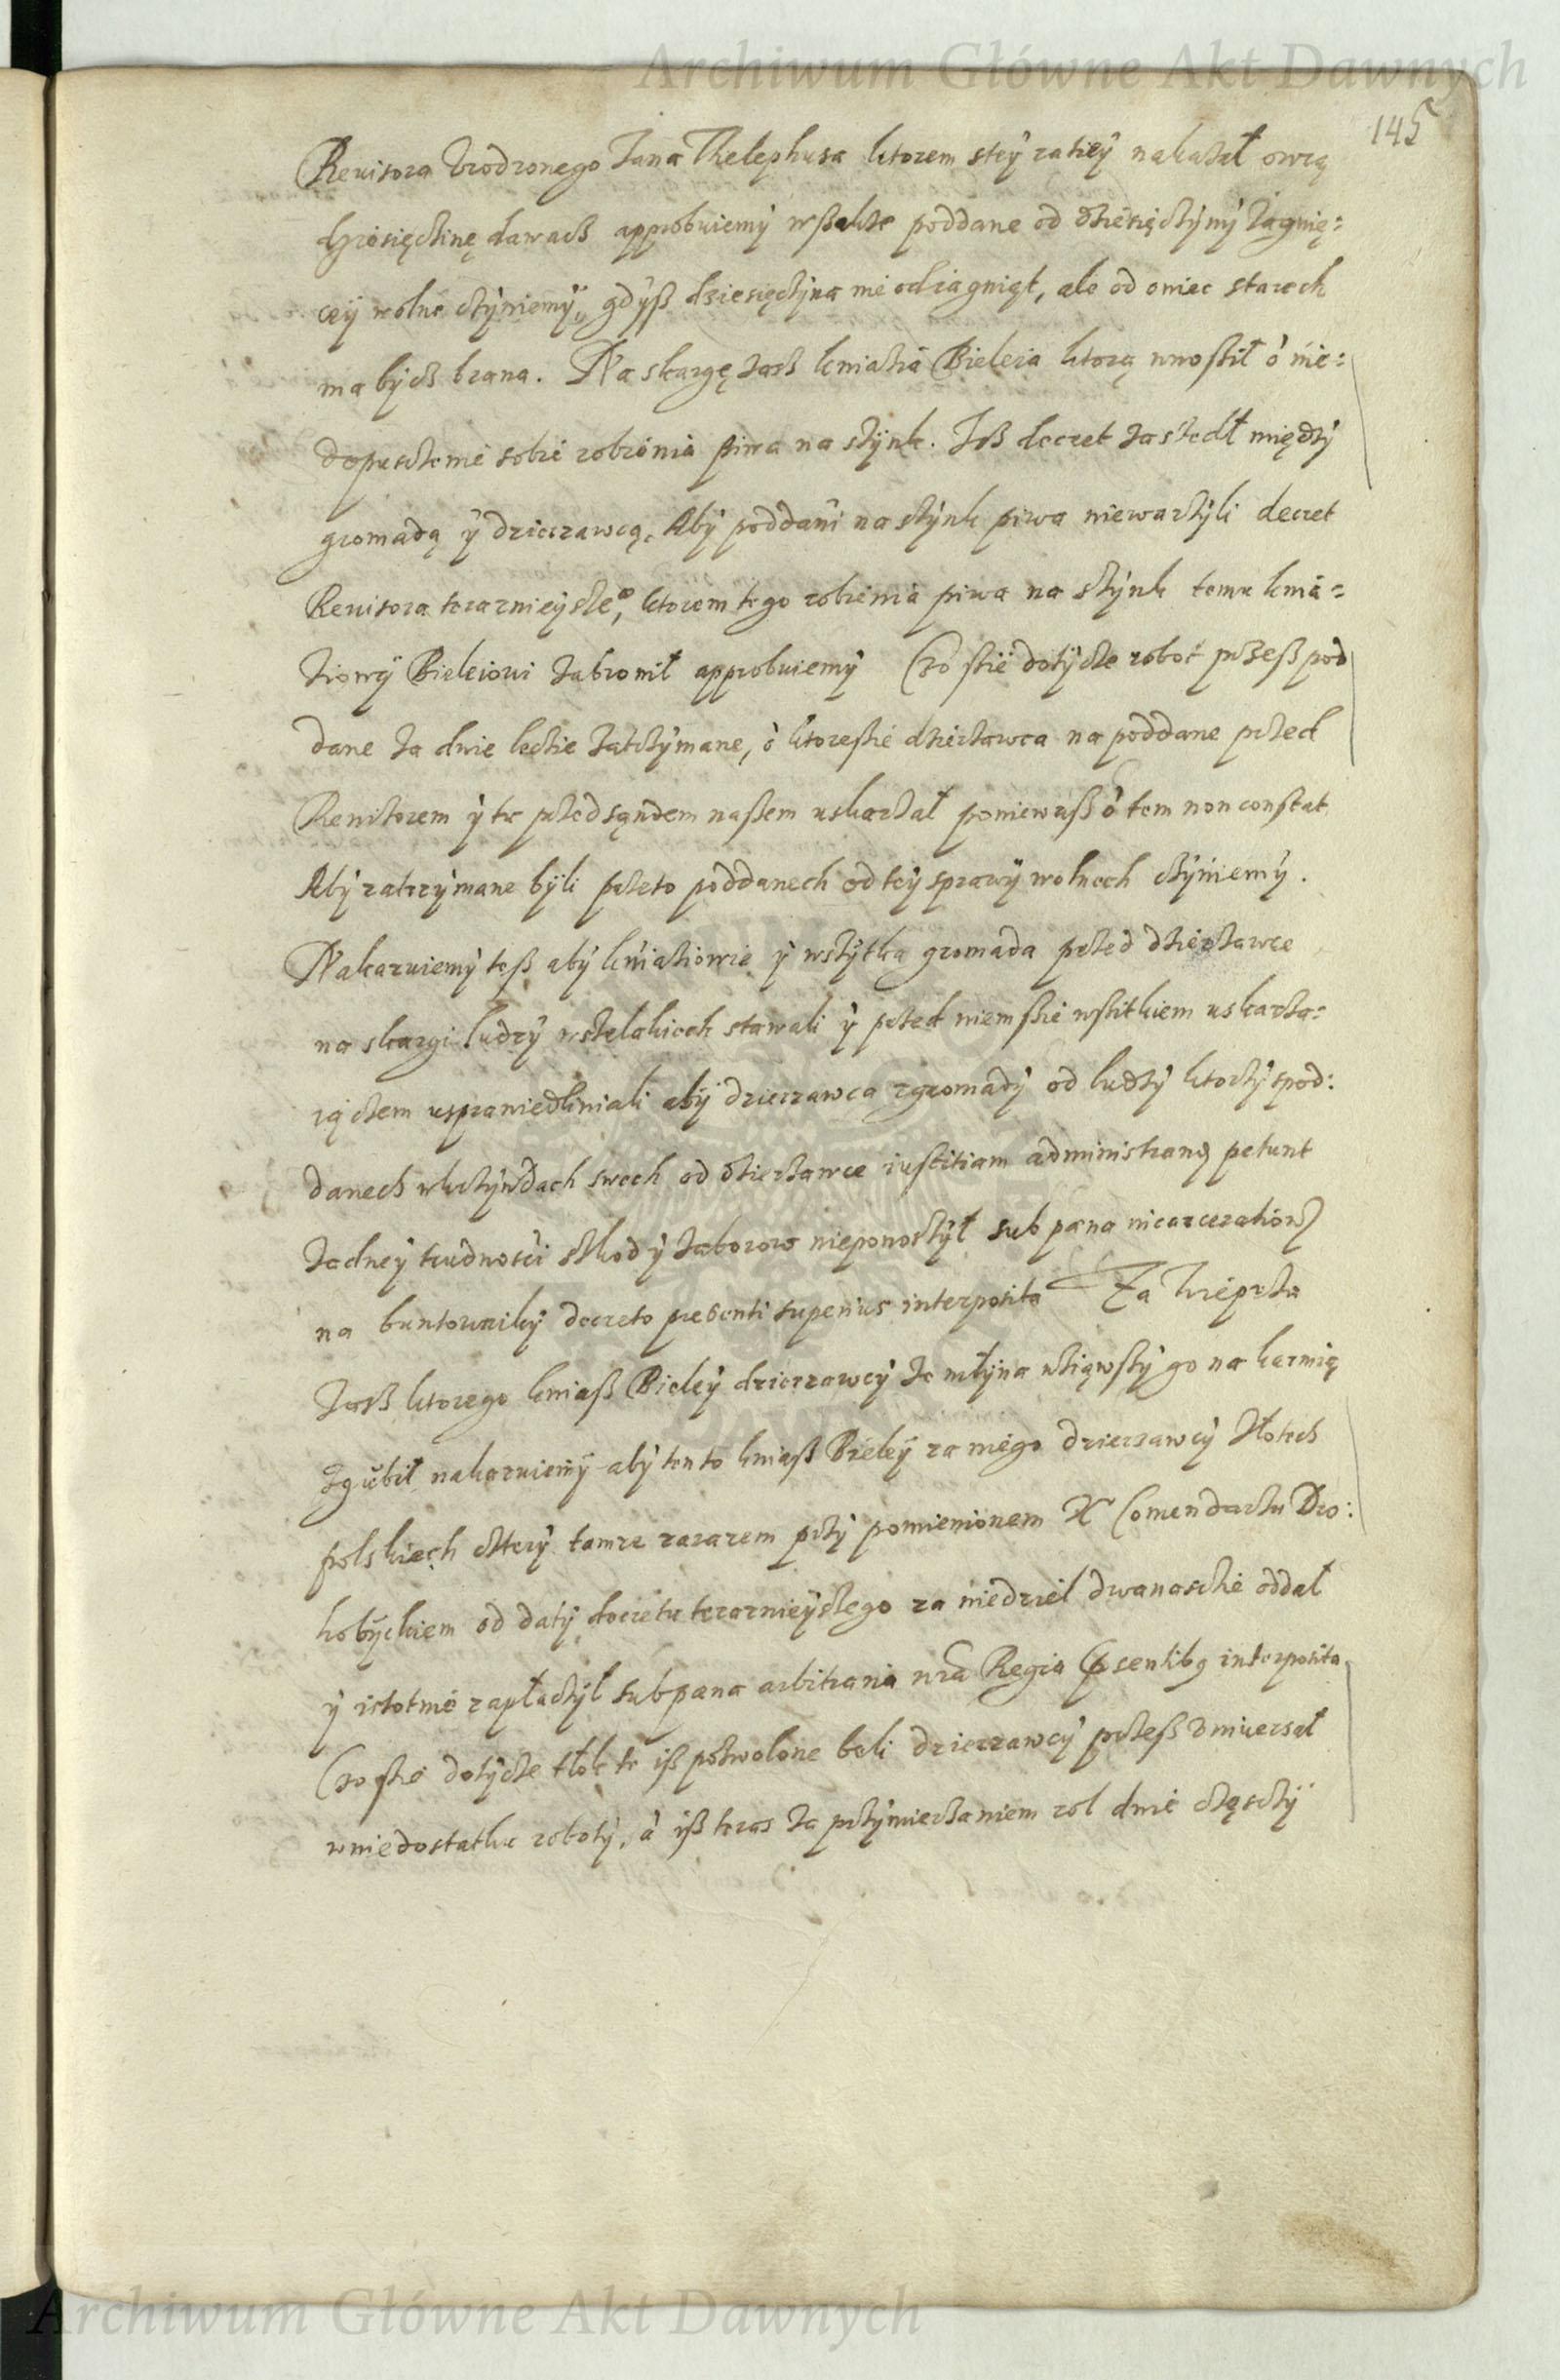 Archiwum Główne Akt Dawnych
145
Revisora Vrodzonego Jana Thelephusa ktorem stey racÿeÿ nakazał owczą
dziesięczinę dawacz approbuiemÿ wszakze poddane od dziesięczÿnÿ Jagnię:
ceÿ wolne czÿniemÿ, gdÿsz dziesięczÿna nie od iagniąt, ale od owiec starech
ma bÿcz brana. Na skargę zasz kniazia Bieleia ktorą wnosził o nie=
dopusczenie sobie robienia piwa na szÿnk. Isz decret zaszedł międzÿ
gromadą ÿ dzierzawcą, Abÿ poddani na szÿnk piwa niewarzÿli decret
Revisora terazniejsze°, ktorem tego robienia piwa na szÿnk temu knia=
ziowÿ Bieleiowi zabronił approbuiemÿ Czo szie dotÿcze robot przesz pod
dane za dnie leczie zatrzÿmane, o ktoreszie dzierzawca na poddane przed
Revizorem ÿ tu przed sąndem naszem uskarzał poniewasz o tem non constat
Abÿ zatrzÿmane bÿli przeto poddanech od teÿ sprawÿ wolnech czÿniemÿ.
Nakazuiemÿ tesz abÿ kniaziowie ÿ wszÿtka gromada przed dzierzawce
na skargi ludzÿ wszelakicch stawali ÿ przed niem szie wszitkiem uskarza=
iączem usprawiedliwiali abÿ dzierzawca zgromadÿ od ludzÿ ktorzÿ spod:
danech wkrzÿwdach swech od dzierzawce iustitiam administrang petunt
zadneÿ trudności szkodÿ zaborow nieponoszÿł sub pœna incarcerationis
na buntownikÿ decreto presenti superius interposita Za Wieprza
zasz ktorego kniasz Bieleÿ dzierzawcÿ ze młÿna wziąwszÿ go na karmią
zgubił nakazuiemÿ abÿ tento kniasz Bieleÿ za niego dzierzawcÿ złotech
polskiech czterÿ tamze zarazem przÿ pomienionem X Comendarzu Dro:
hobÿckiem od datÿ decretu terazniejszego za niedziel dwanascie oddał
ÿ istotnie zapłaczÿł sub pœna arbitraria nrã Regia psentibg interposita
Czo szie dotÿcze tłok te isz pozwolone beli dzierzawcÿ przesz Vniuersał
wniedostatku robotÿ, a isz teras za przÿmierzaniem rol dnie częsczÿ
Archiwum Główne Akt Dawnych